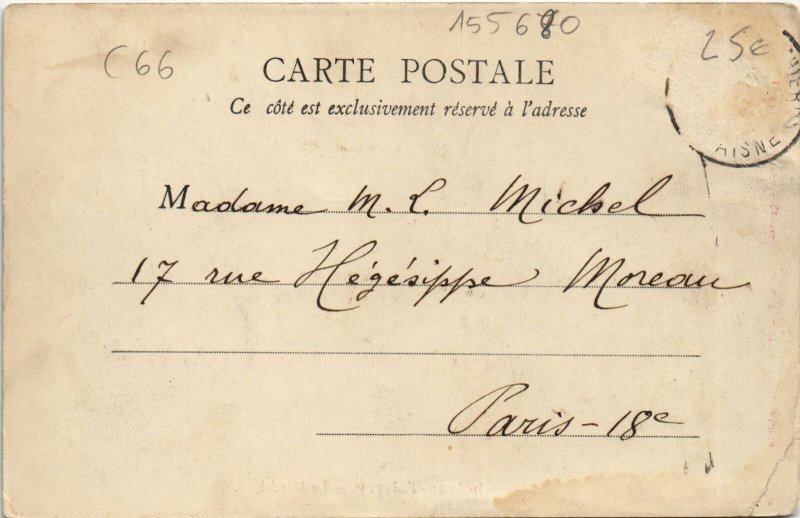 155680
25c
C66
CARTE POSTALE
Ce côté est exclusivement réservé à l'adresse
AISNE
Madame M. L. Michel
17 rue Hégésippe Moreau
Paris-18e